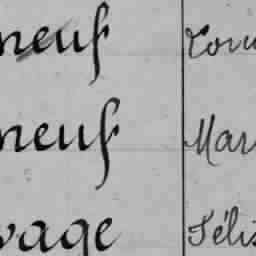 neuf Lou
neuf Mar
vage Féli